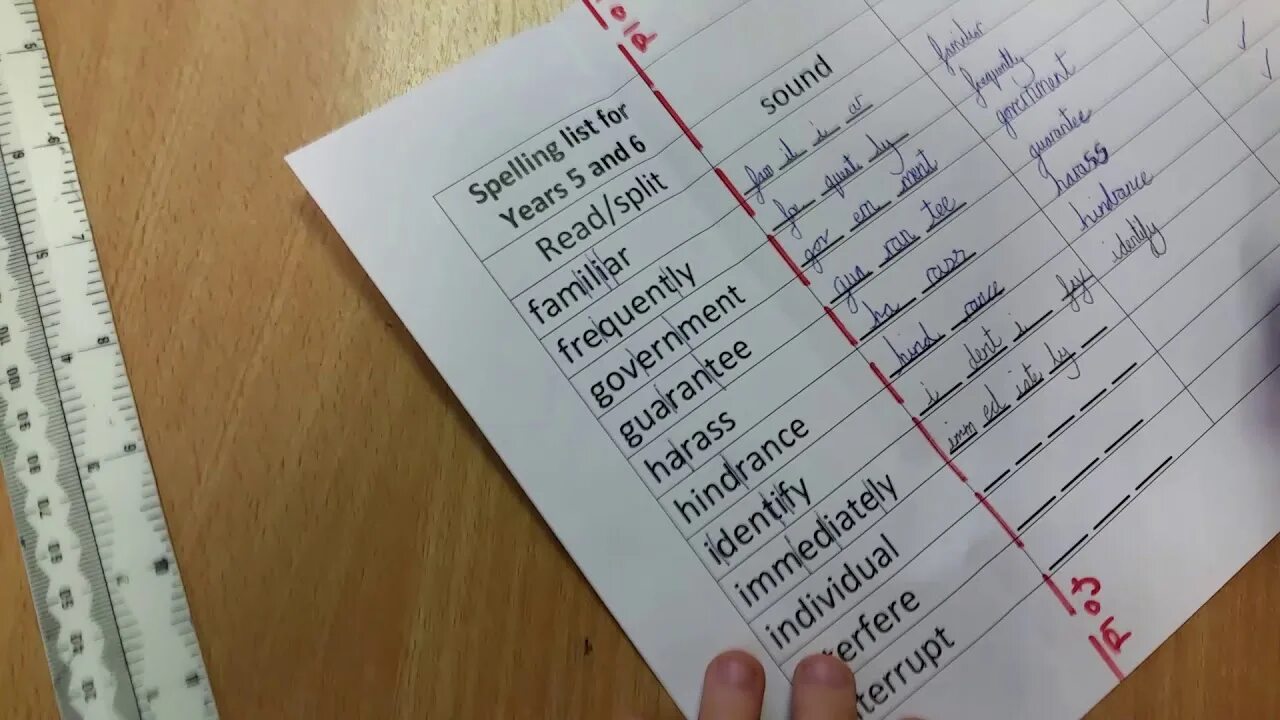 Spelling list for
Years 5 and 6
Read/split sound
familiar fam il i ar familiar
frequently fre quent ly frequently
government gov ern ment government
guarantee gua ran tee guarantee
harass ha rass harass
hindrance hind rance hindrance
identify i dent i fy identify
immediately imm ed iate ly
individual
terfere
terrupt